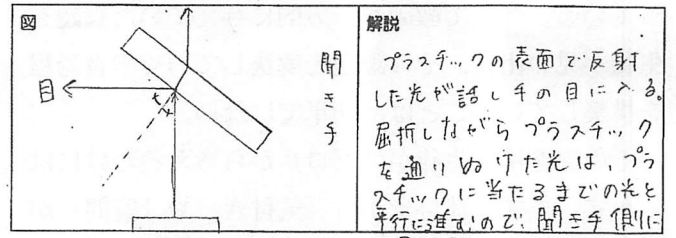 図
目
聞き手
解説
プラスチックの表面で反射
した光が話し手の目に入る。
屈折しながらプラスチック
を通りぬけた光は、プラ
スチックに当たるまでの光と
平行に進むので、聞き手側に